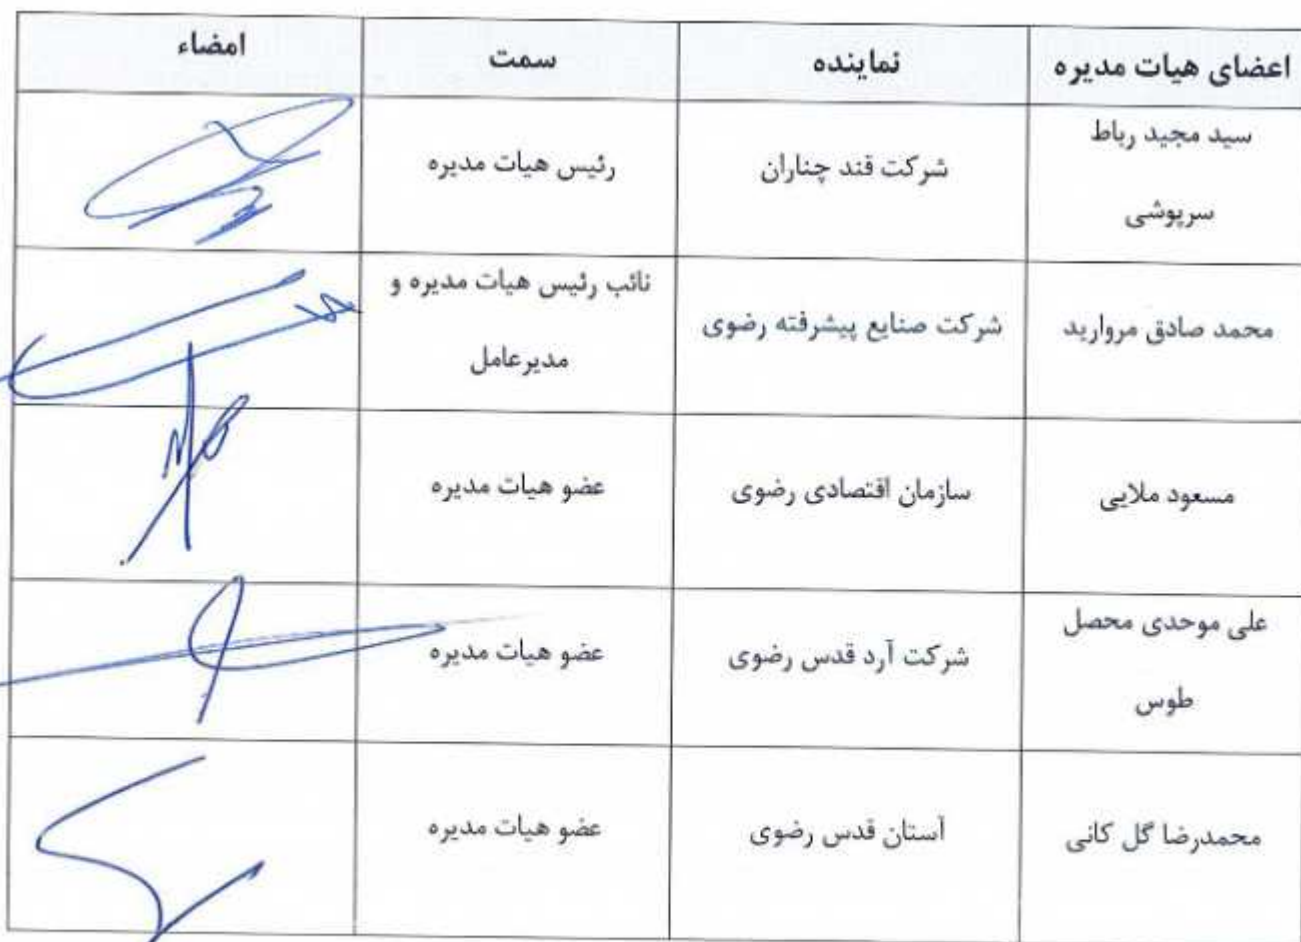 اعضای هیات مدیره نماینده سمت امضاء
سید مجید رباط
سرپوشی
شرکت قند چناران
رئیس هیات مدیره
محمد صادق مروارید
شرکت صنایع پیشرفته رضوی
نائب رئیس هیات مدیره و
مدیرعامل
مسعود ملایی
سازمان اقتصادی رضوی
عضو هیات مدیره
علی موحدی محصل
طوس
شرکت آرد قدس رضوی
عضو هیات مدیره
محمدرضا گل کانی
آستان قدس رضوی
عضو هیات مدیره